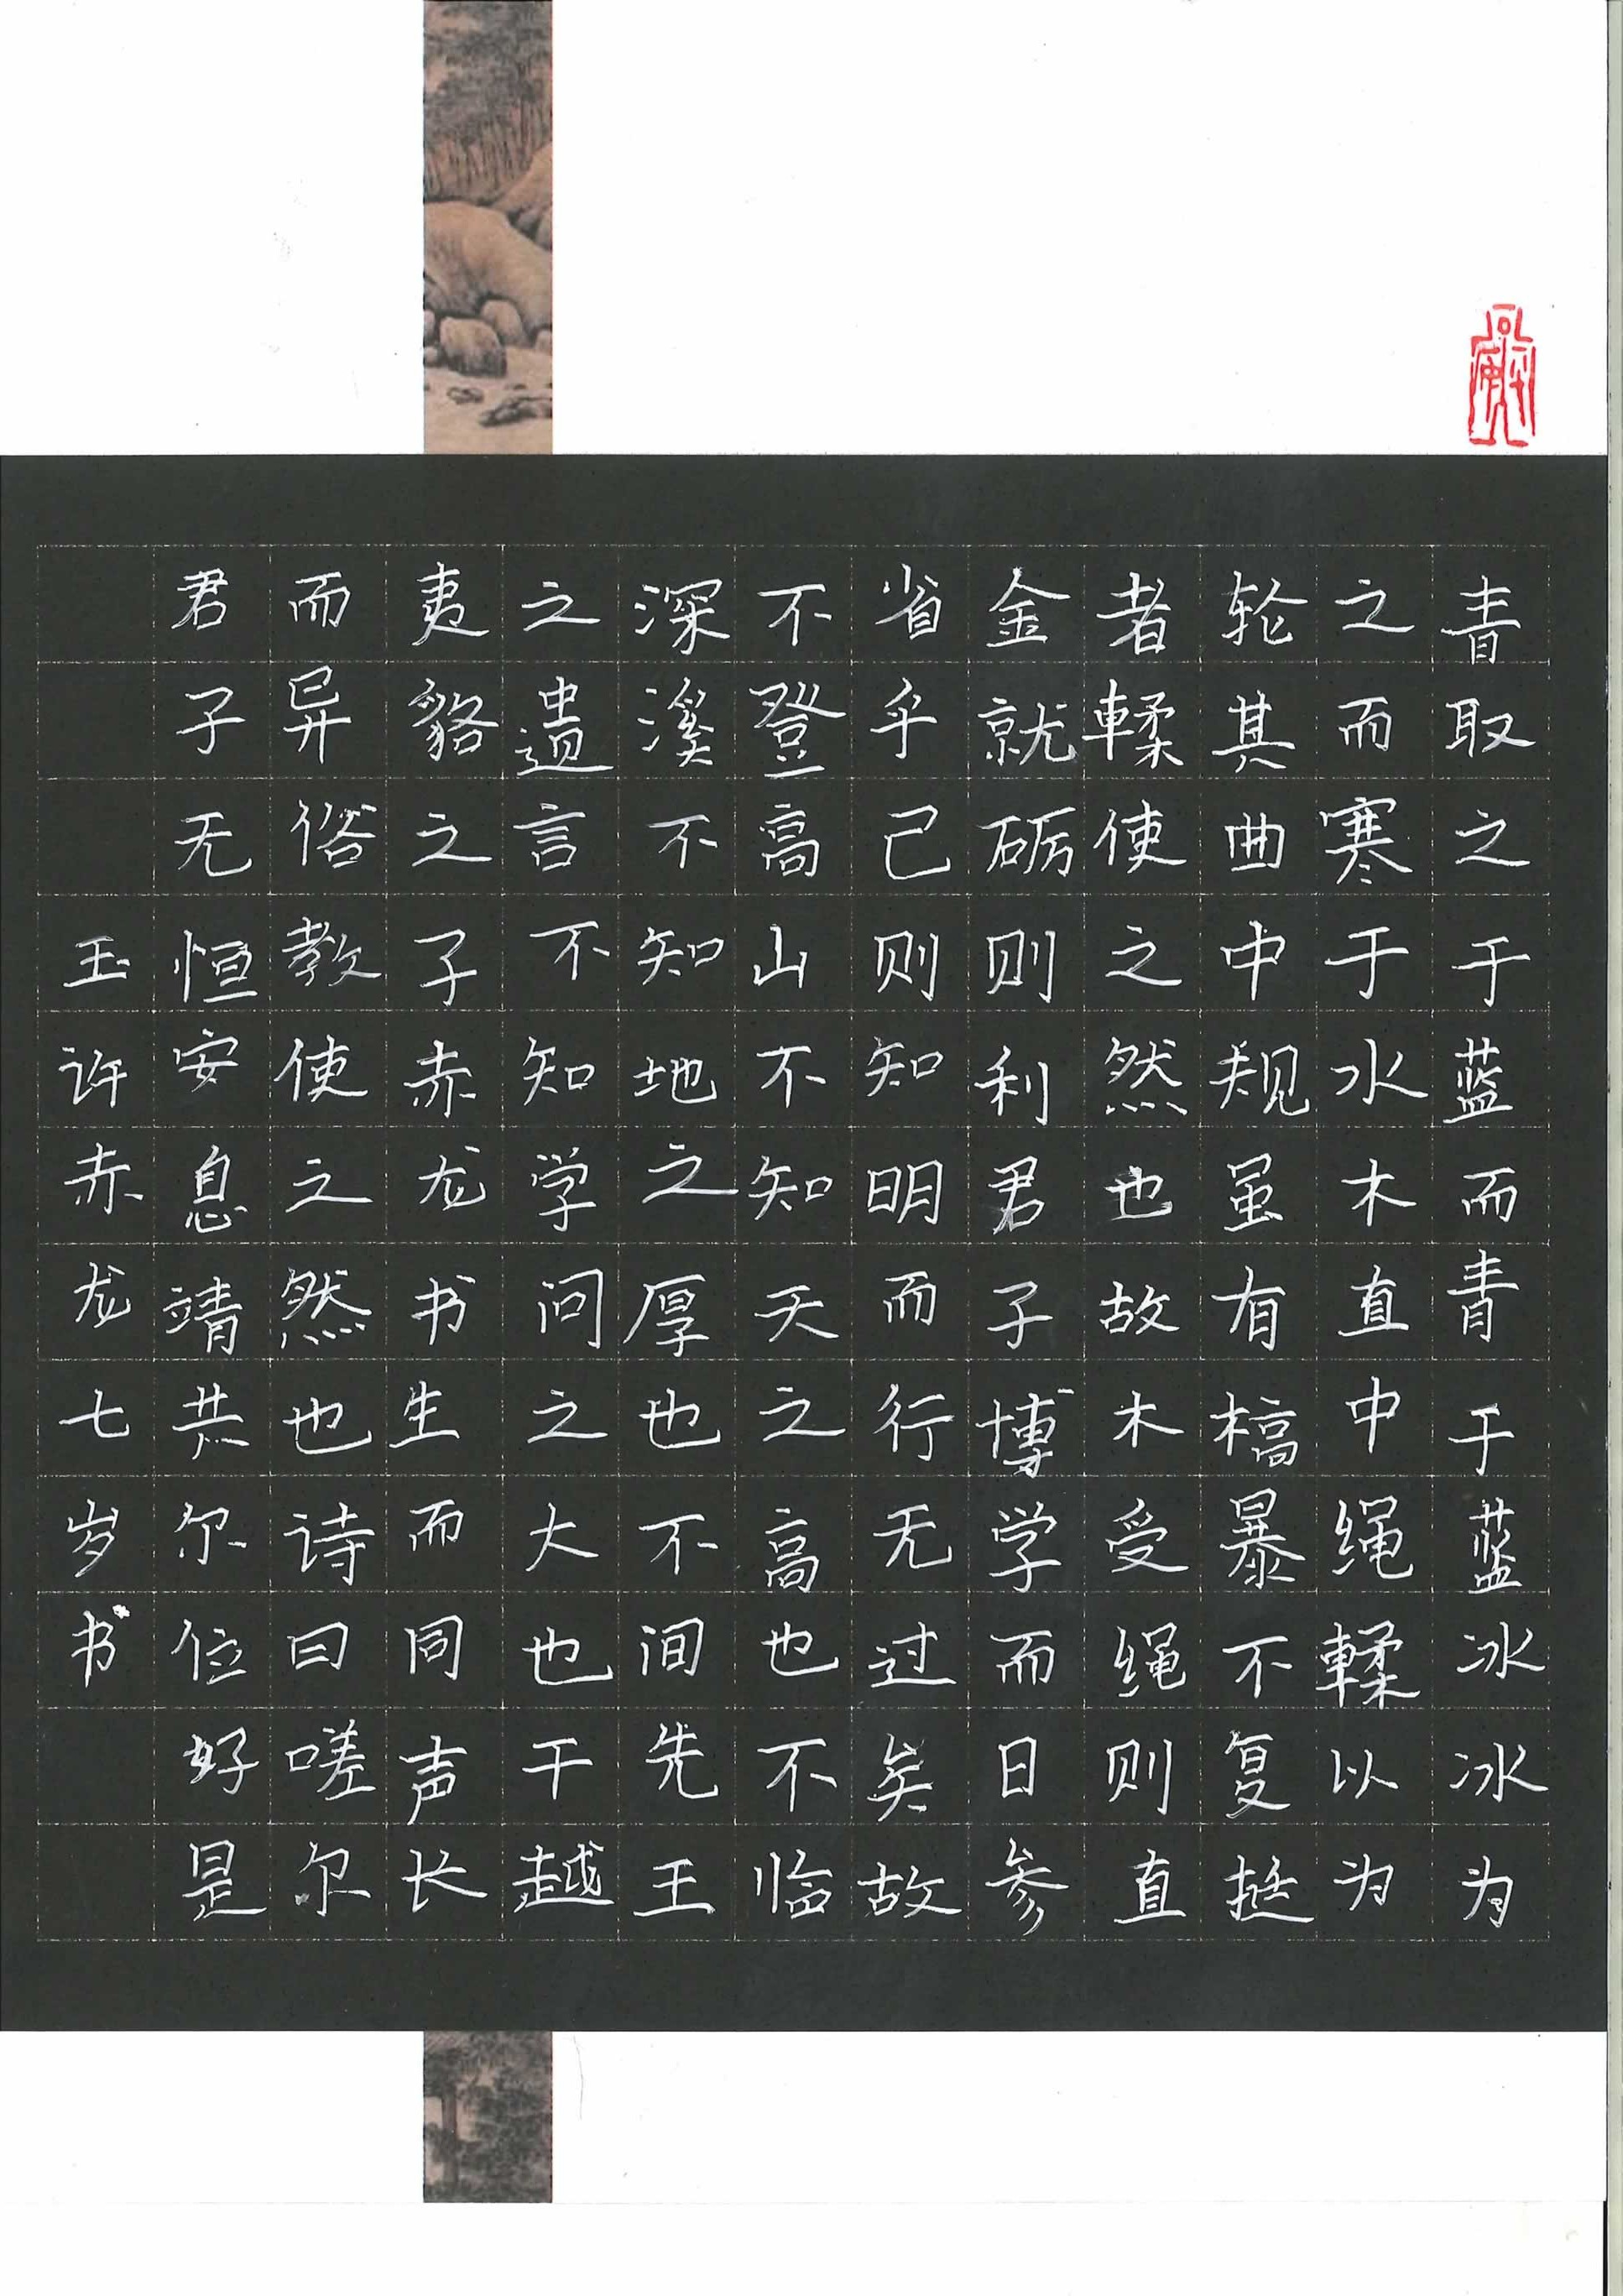 青取之于蓝而青于蓝冰冰为
之而寒于水木直中绳輮以为
轮其曲中规虽有槁暴不复挺
者輮使之然也故木受绳则直
金就砺则利君子博学而日参
省乎己则知明而行无过矣故
不登高山不知天之高也不临
深溪不知地之厚也不间先王
之遗言不知学问之大也干越
夷貉之子赤龙书生而同声长
而异俗教使之然也诗曰嗟尔
君子无恒安息靖共尔位好是
玉许赤龙七岁书